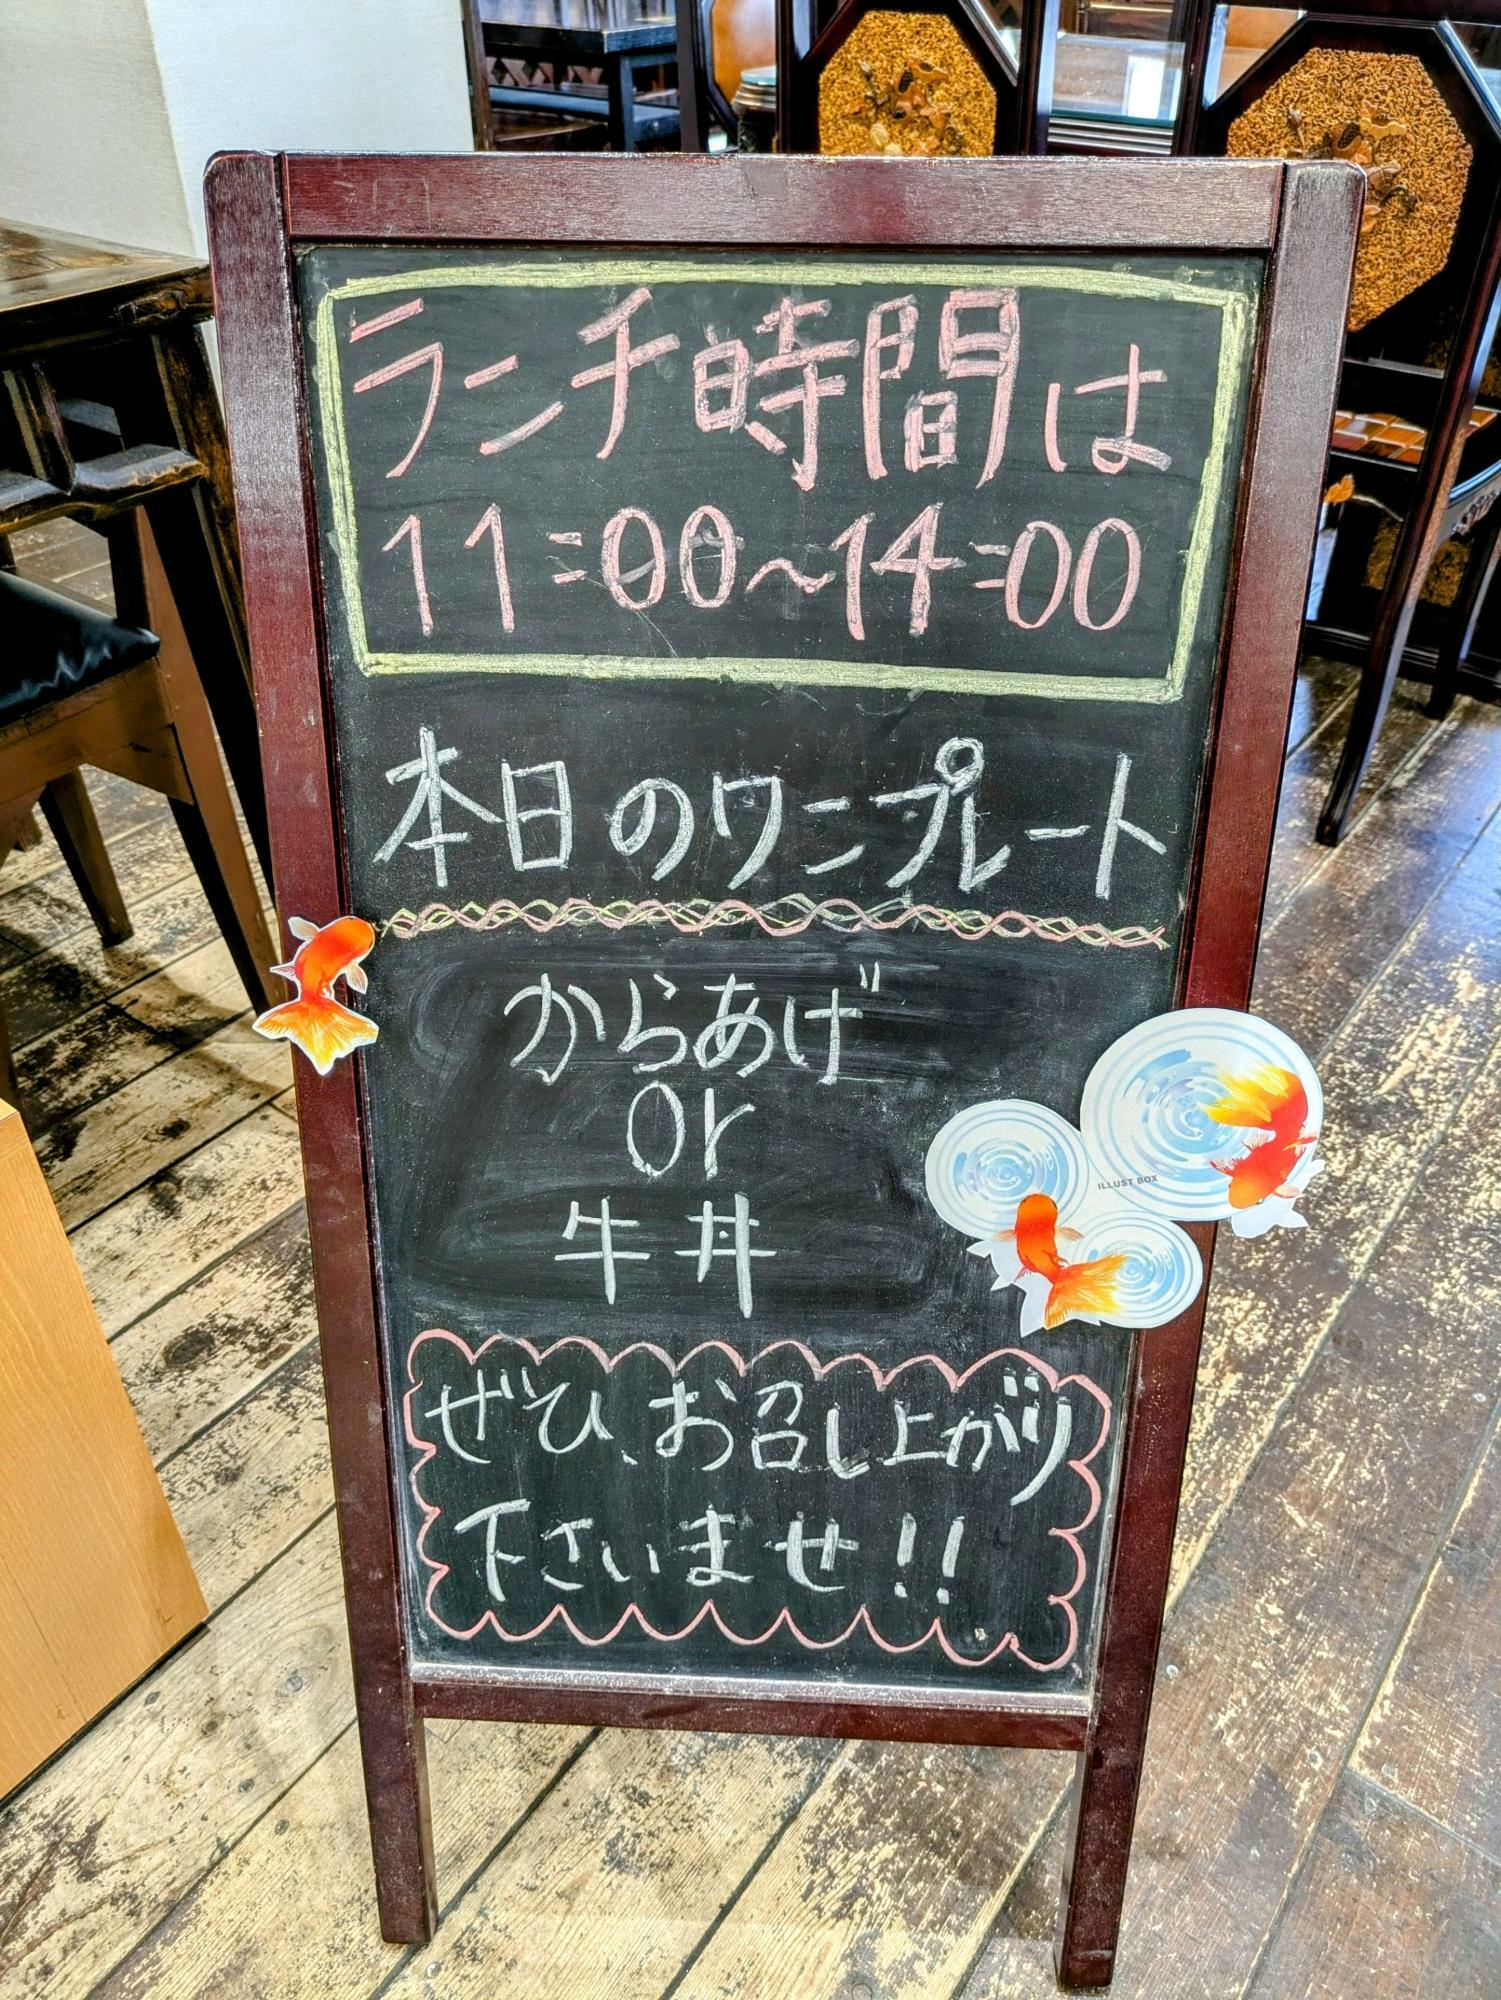 ランチ時間は
11:00〜14:00
本日のワンプレート
からあげ
or
牛丼
ILLUST BOX
ぜひ、お召し上がり
下さいませ!!